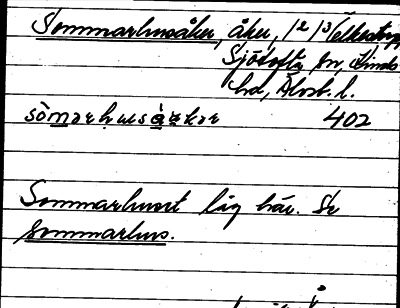 Sommarhusåker, åker, 1/2 1/3
Sjötofta sn, Kinds
hd, Älvsb. l.
sòmarhusà̱kar 402
Sommarhuset låg här. Se
sommarhus.